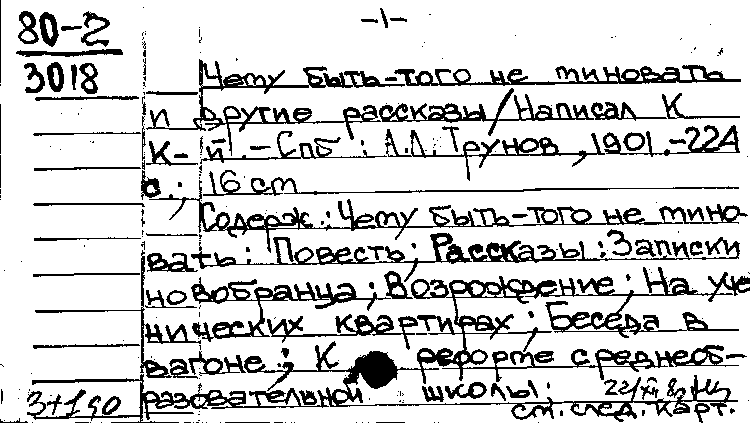 -1-
80-2
3018
Чему быть-того не миновать
и другие рассказы/Написал К
К-й.-Спб: А.Л.Трунов, 1901.-224
с.; 16 см.
Содерж.: Чему быть-того не мино-
вать: Повесть; Рассказы: Записки
новобранца; Возрождение; На уче-
нических квартирах; Беседа в
вагоне; К реформе среднеоб-
разовательной школы;
см. след. карт.
3+1 до